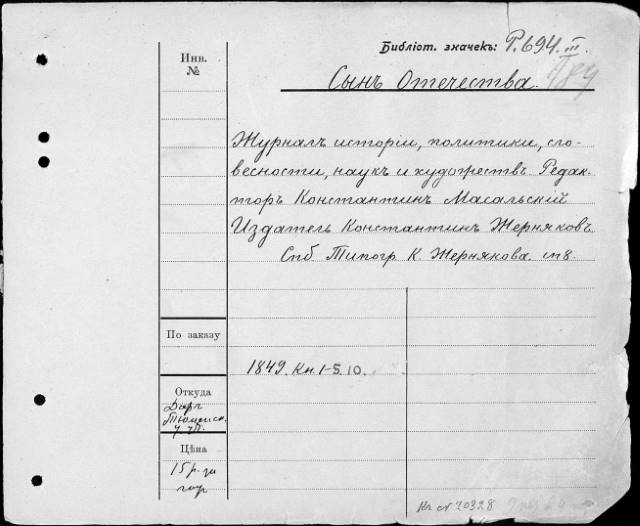 Библіот. значекъ: Р.694.III.
Инв. №
Сынъ Отечества.
Журналъ исторіи, политики, сло-
весности, наукъ и художествъ. Редак-
торъ Константинъ Масальскій
Издатель Константинъ Жернаковъ.
Спб. Типогр. К. Жернакова. in 8.
По заказу
1849. Кн. 1-5. 10.
Откуда
Цѣна
15 р. за
год
20328